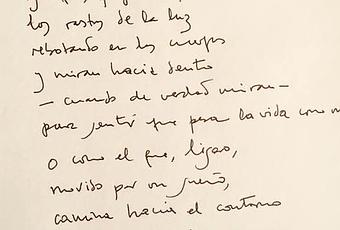 los rastros de la luz
rebotando en los cuerpos
y miran hacia dentro
— cuando de verdad miran —
para sentir que pasa la vida como
o como el que, ligero,
movido por un sueño,
camina hacia el contorno